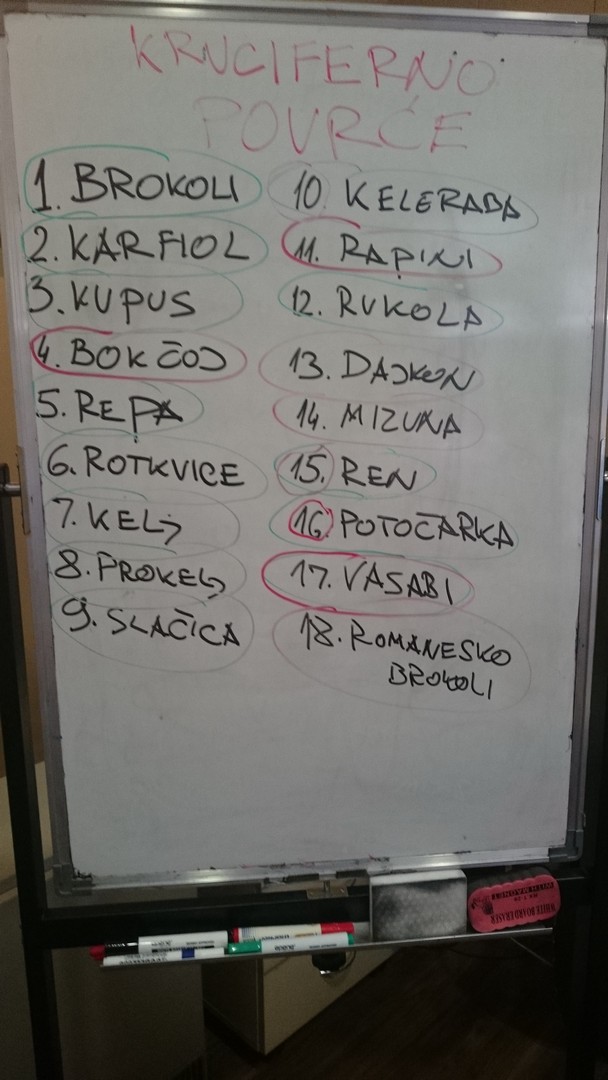 KRUCIFERNO
POVRĆE
1. BROKOLI
2. KARFIOL
3. KUPUS
4. BOK ČOJ
5. REPA
6. ROTKVICE
7. KELJ
8. PROKELJ
9. SLAČICA
10. KELERABA
11. RAPINI
12. RUKOLA
13. DAJKON
14. MIZUNA
15. REN
16. POTOČARKA
17. VASABI
18. ROMANESKO
BROKOLI
WHITE BOARD ERASER
WITH MAGNET